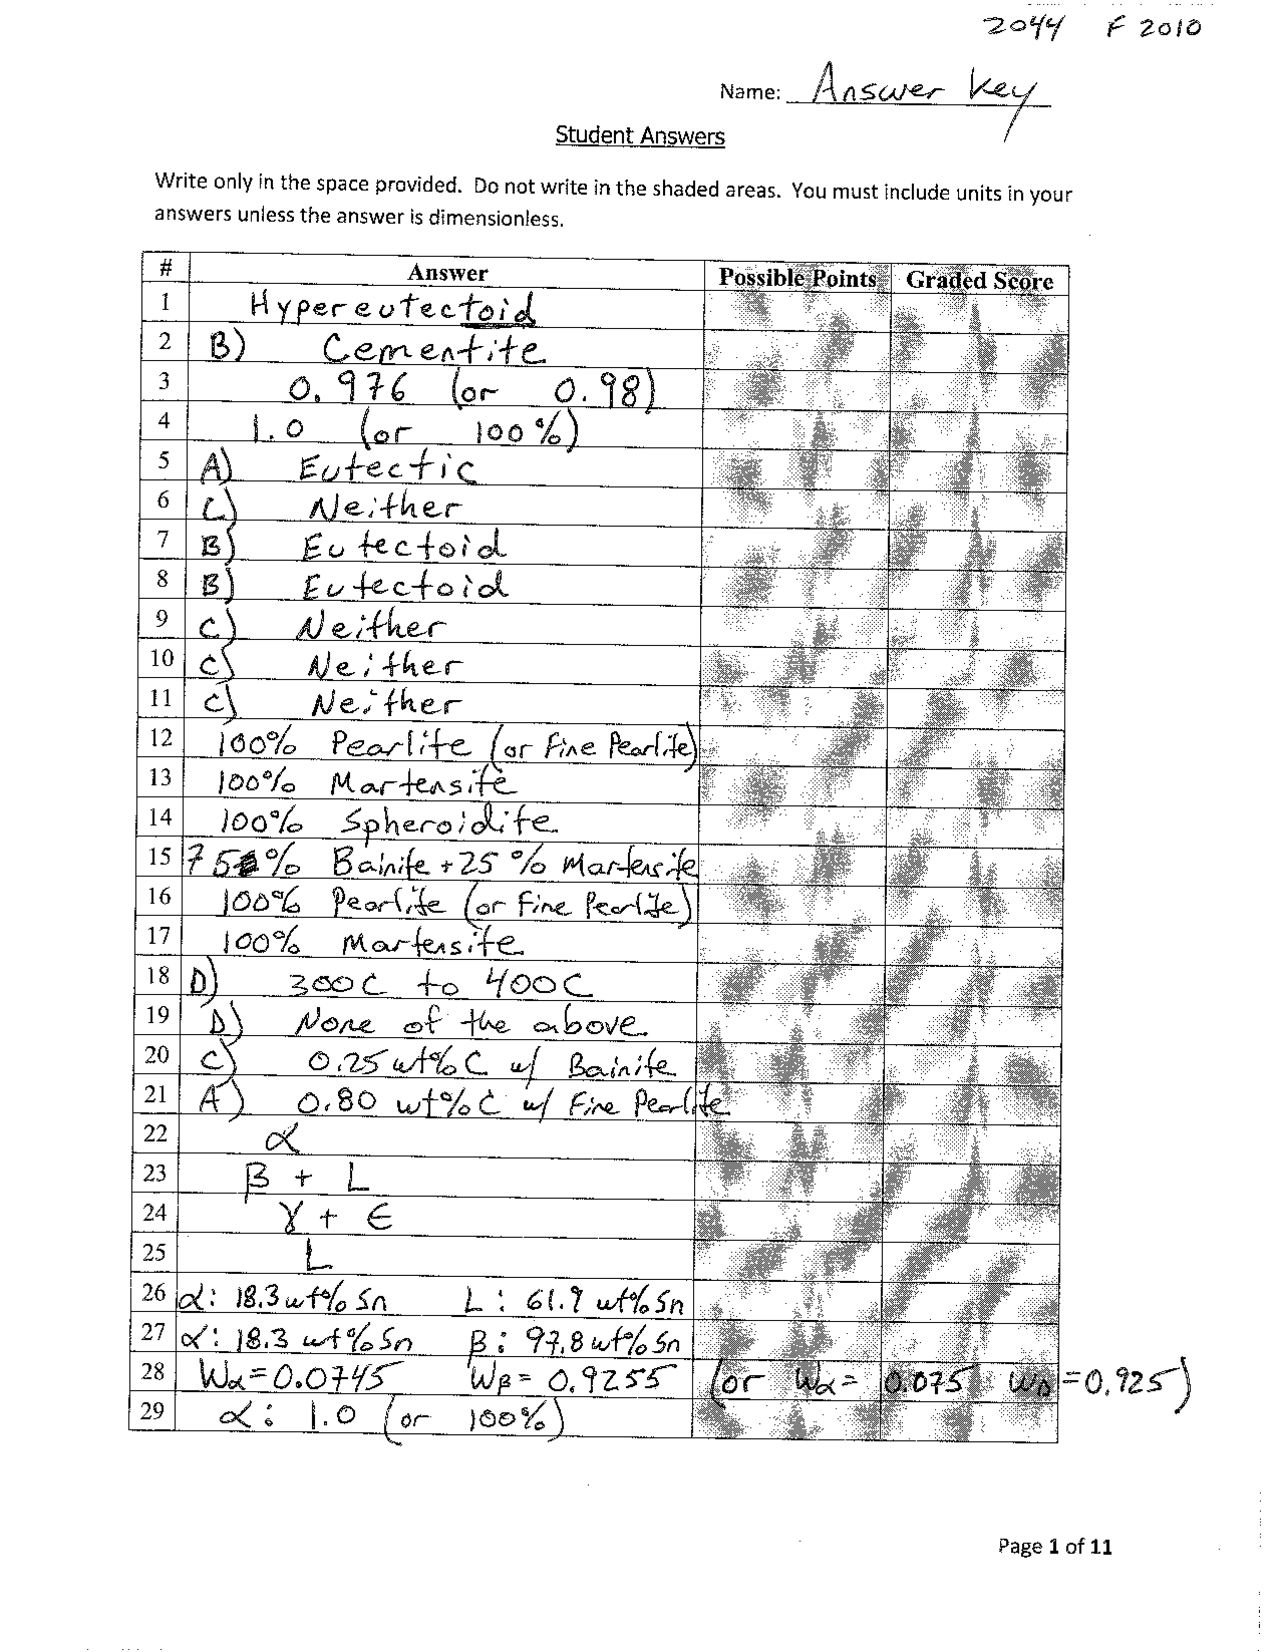 2044 F 2010
Name: Answer Key
Student Answers
Write only in the space provided. Do not write in the shaded areas. You must include units in your
answers unless the answer is dimensionless.
# Answer Possible Points Graded Score
1 Hypereutectoid
2 B) Cementite
3 0.976 (or 0.98)
4 1.0 (or 100%)
5 A) Eutectic
6 C) Neither
7 B) Eutectoid
8 B) Eutectoid
9 C) Neither
10 C) Neither
11 C) Neither
12 100% Pearlite (or Fine Pearlite)
13 100% Martensite
14 100% Spheroidite
15 75% Bainite + 25% Martensite
16 100% Pearlite (or Fine Pearlite)
17 100% Martensite
18 D) 300C to 400C
19 D) None of the above
20 C) 0.25 wt% C w/ Bainite
21 A) 0.80 wt% C w/ Fine Pearlite
22 α
23 β + L
24 γ + ϵ
25 L
26 α: 18.3 wt% Sn L: 61.9 wt% Sn
27 α: 18.3 wt% Sn β: 97.8 wt% Sn
28 Wα=0.0745 Wβ= 0.9255 (or Wα= 0.075 Wβ=0.925)
29 α: 1.0 (or 100%)
Page 1 of 11